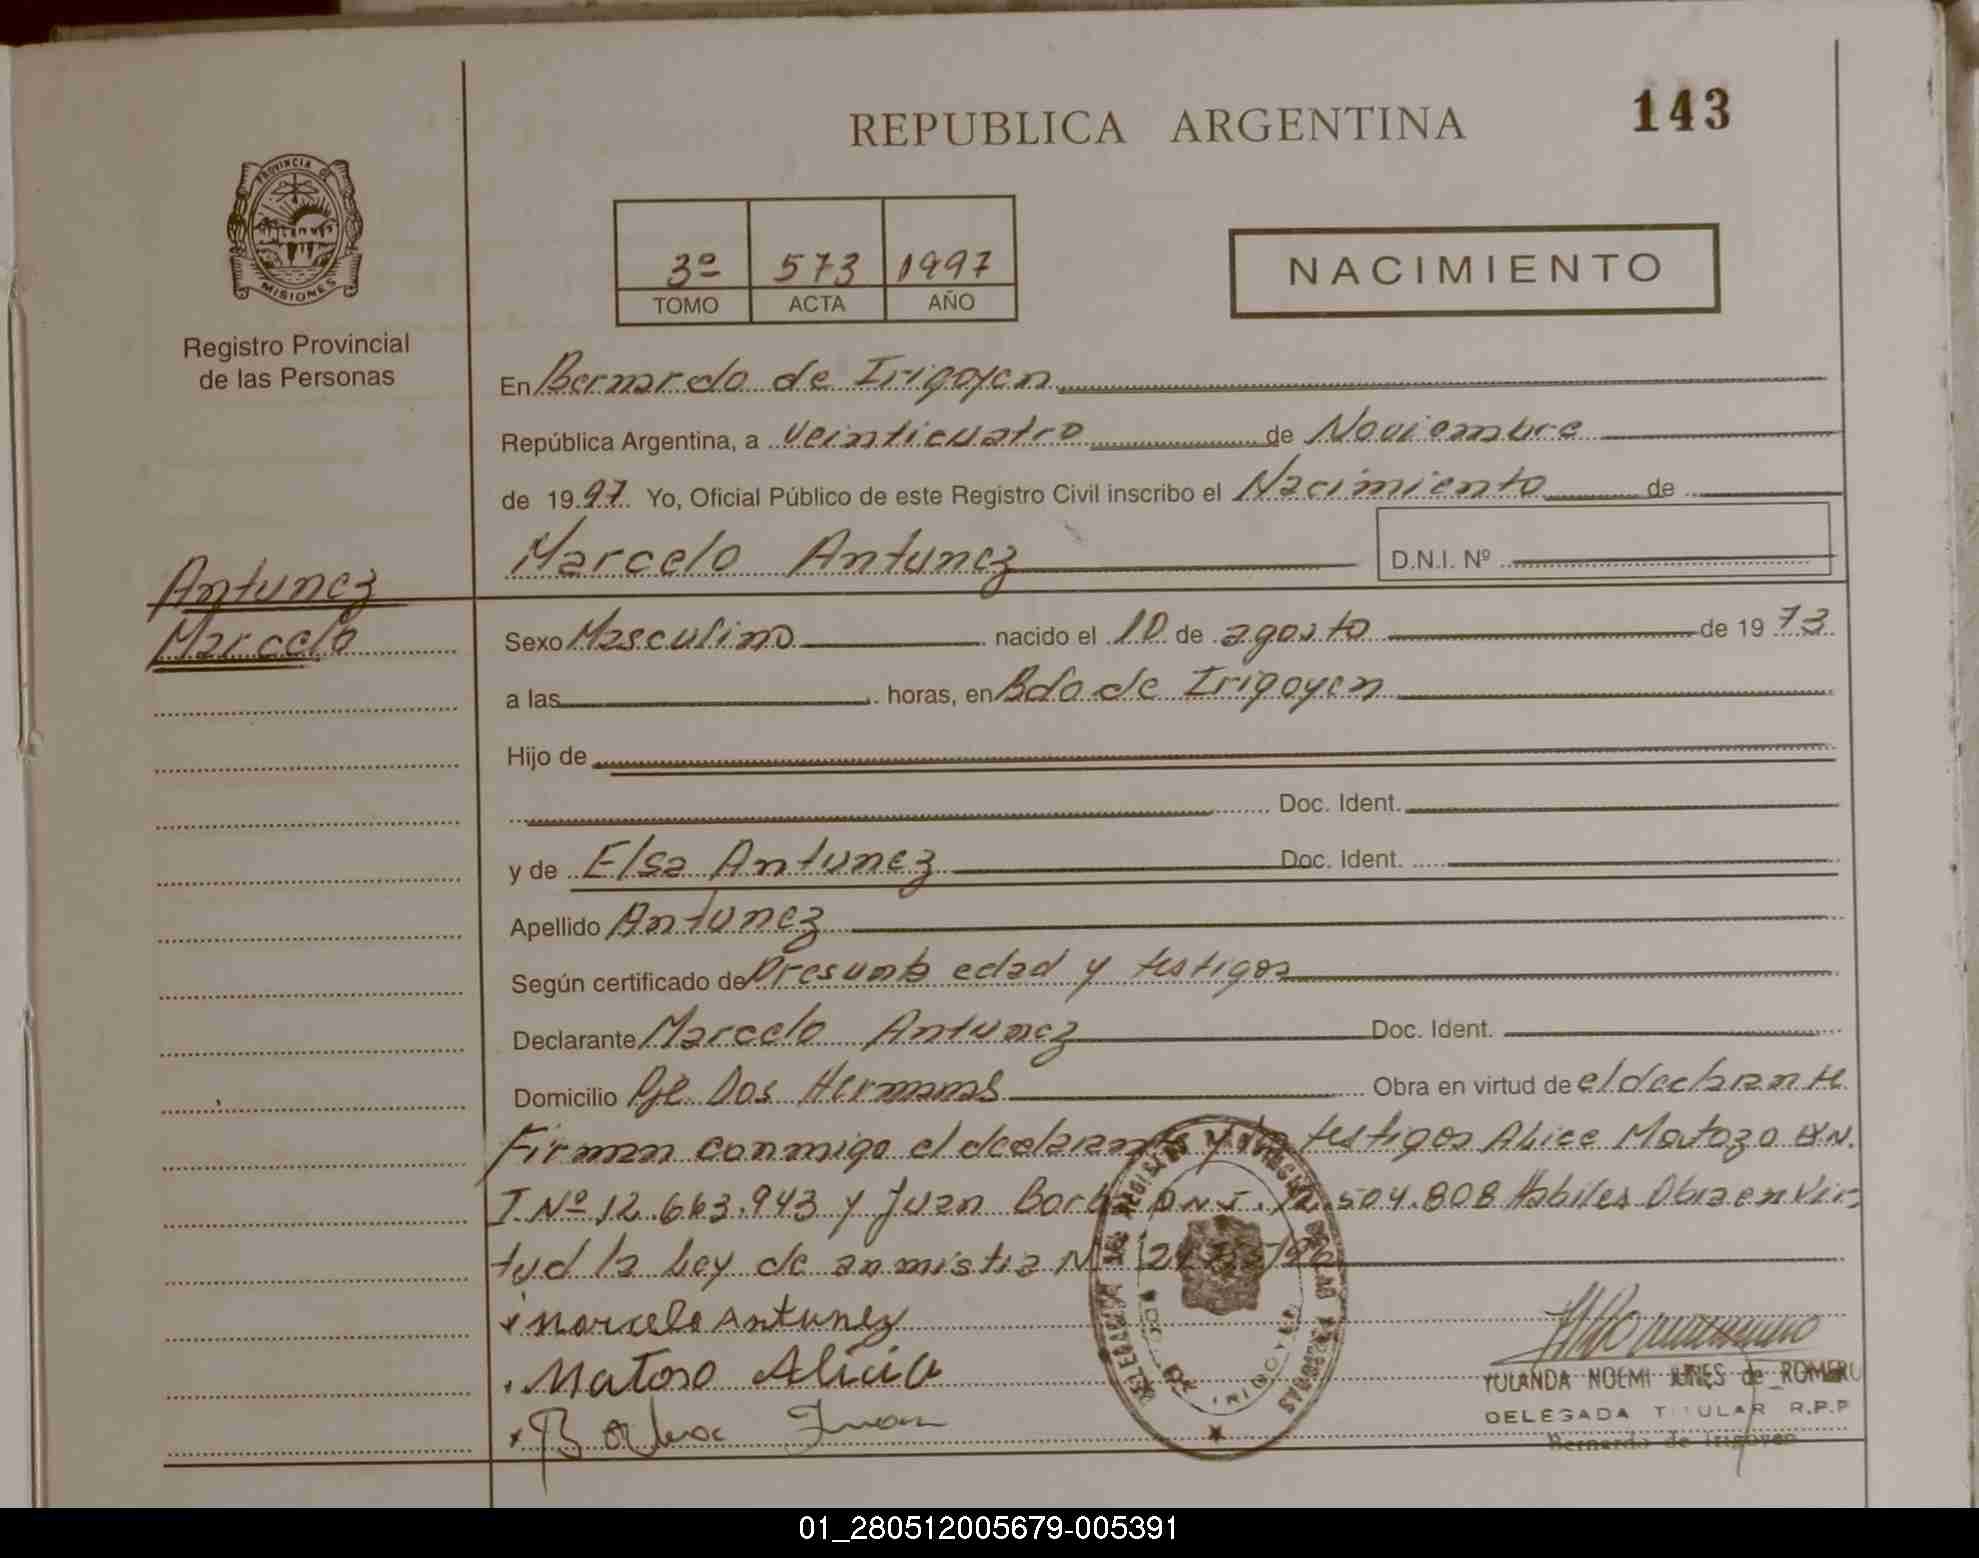 REPUBLICA ARGENTINA
143
PROVINCIA DE
MISIONES
Registro Provincial
de las Personas
3º 573 1997
TOMO ACTA AÑO
NACIMIENTO
En Bernardo de Irigoyen
República Argentina, a veinticuatro de Noviembre
de 1997. Yo, Oficial Público de este Registro Civil inscribo el Nacimiento de
Marcelo Antunez
D.N.I. Nº
Antunez
Marcelo
Sexo Masculino nacido el 10 de agosto de 1973
a las horas, en Bdo de Irigoyen
Hijo de
Doc. Ident.
y de Elsa Antunez Doc. Ident.
Apellido Antunez
Según certificado de Presunta edad y testigos
Declarante Marcelo Antunez Doc. Ident.
Domicilio Pje Dos Hermanas Obra en virtud de el declarante
Firman conmigo el declarante y testigos Alice Matozo D.N.
I. Nº 12.663.943 y Juan Borba D.N.I. 504.808 Habiles Obra en Vir
tud la Ley de anmistia Nº
Marcelo Antunez
Matoso Alicia
Borba Juan
YOLANDA NOEMI de ROMERO
DELEGADA TITULAR R.P.P
Bernardo de Irigoyen
01_280512005679-005391